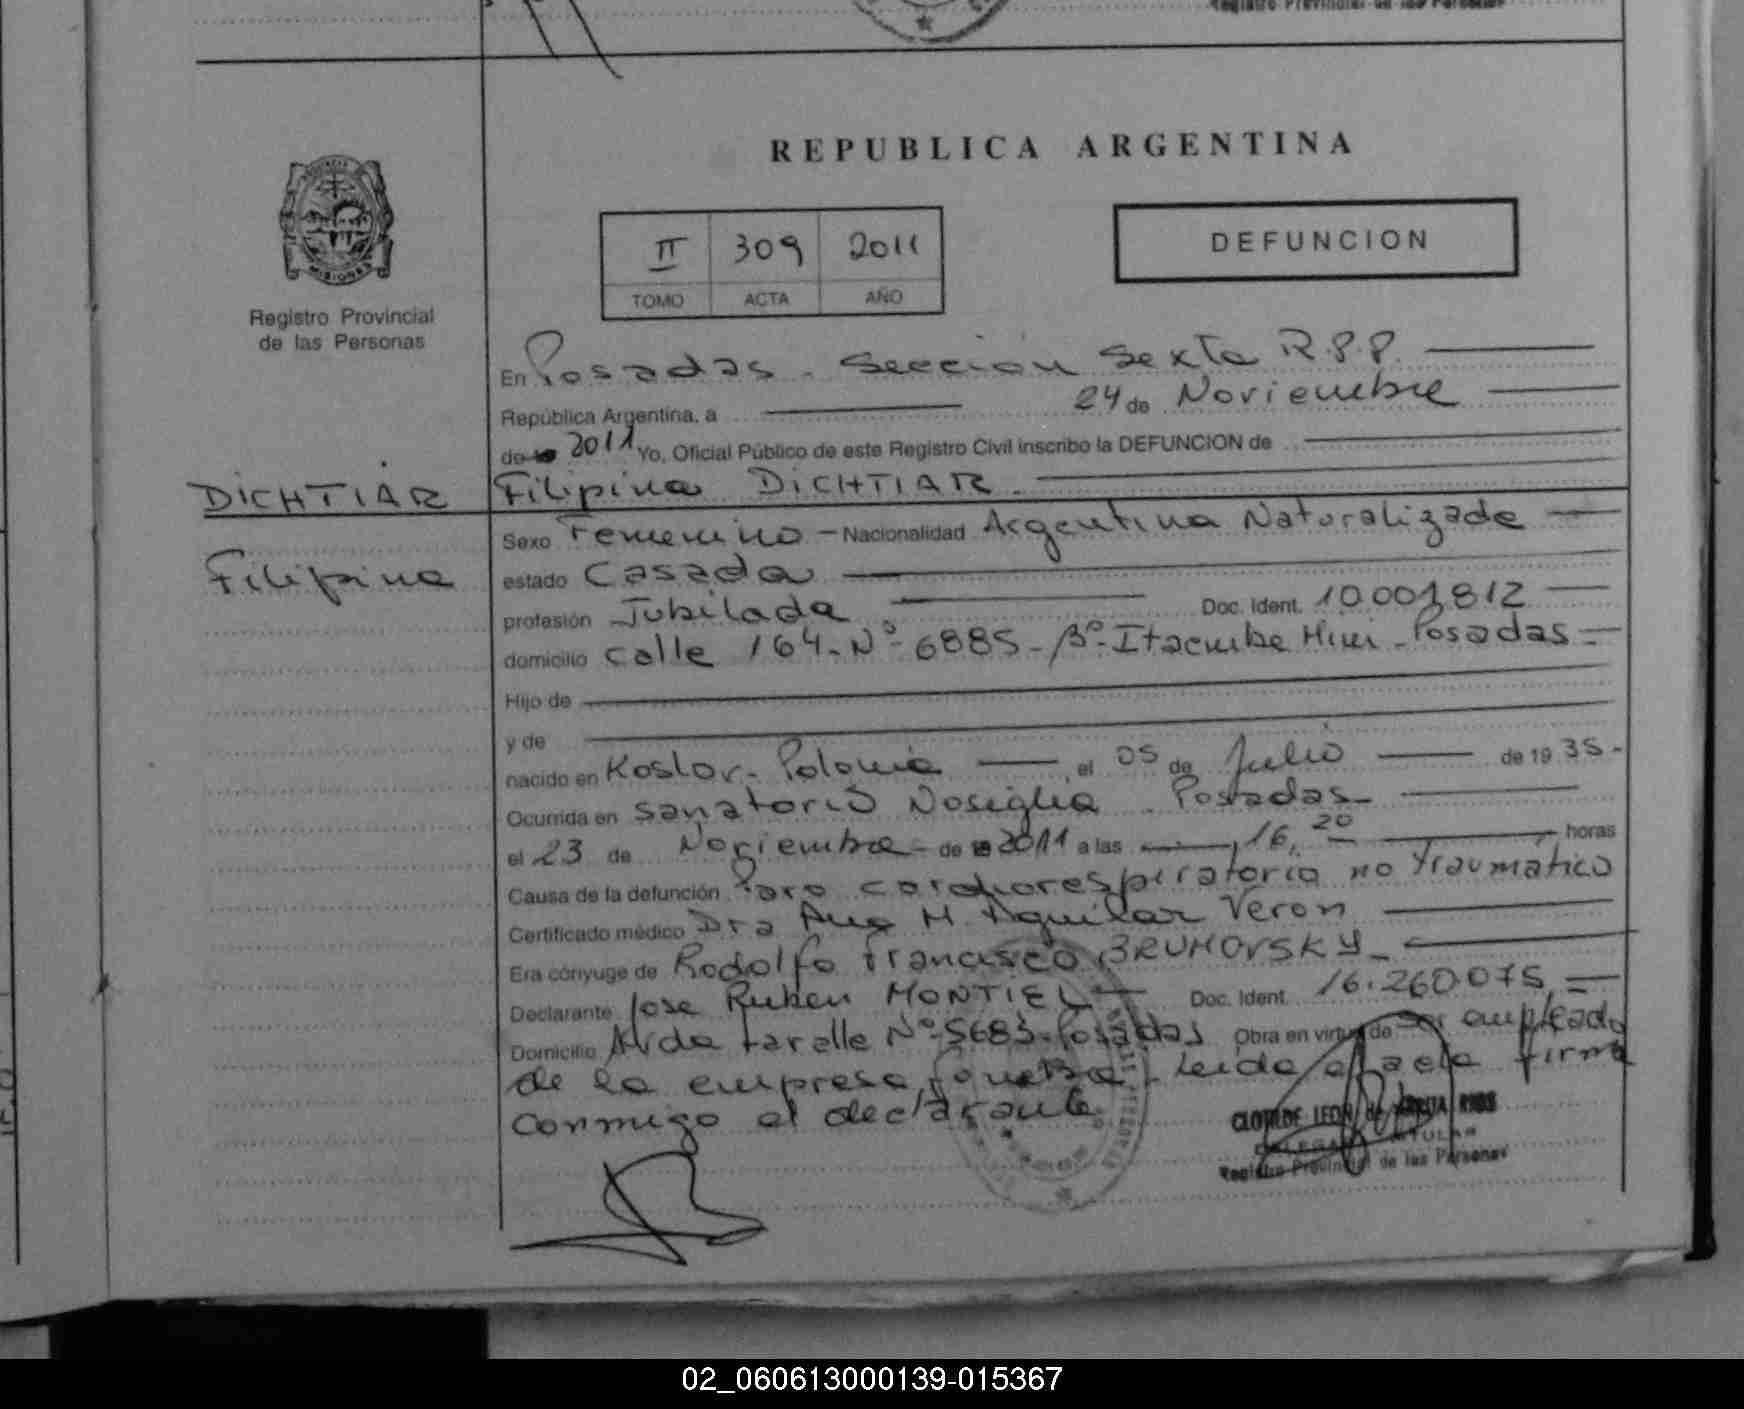 Registro Provincial de las Personas
REPUBLICA ARGENTINA
MISIONES
Registro Provincial
de las Personas
II 309 2011
TOMO ACTA AÑO
DEFUNCION
En Posadas - Seccion Sexta R.P.P.
República Argentina, a 24 de Noviembre
de 2011 Yo, Oficial Público de este Registro Civil inscribo la DEFUNCION de
DICHTIAR
Filipina DICHTIAR
Filipina
Sexo Femenino - Nacionalidad Argentina Naturalizada
estado Casada
profesión Jubilada Doc. Ident. 10001812
domicilio calle 164 - Nº 6885 - Bº Itaembe Mini - Posadas
Hijo de
y de
nacido en Koslov - Polonia, el 05 de Julio de 1935-
Ocurrida en Sanatorio Nosiglia - Posadas-
el 23 de Noviembre de 2011 a las 16,20 horas
Causa de la defunción Paro cardiorespiratorio no traumático
Certificado médico Dra Ana M Aguilar Veron
Era cónyuge de Rodolfo Francisco BRUHOVSKY-
Declarante Jose Ruben MONTIEL Doc. Ident. 16.260.075
Domicilio Avda Nº 5683 - Posadas Obra en virtud de ser empleado
de la empresa Leida el acta firma
conmigo el declarante.
CLOTILDE LEON de RIOS
DELEGADA TITULAR
Registro Provincial de las Personas
02_060613000139-015367